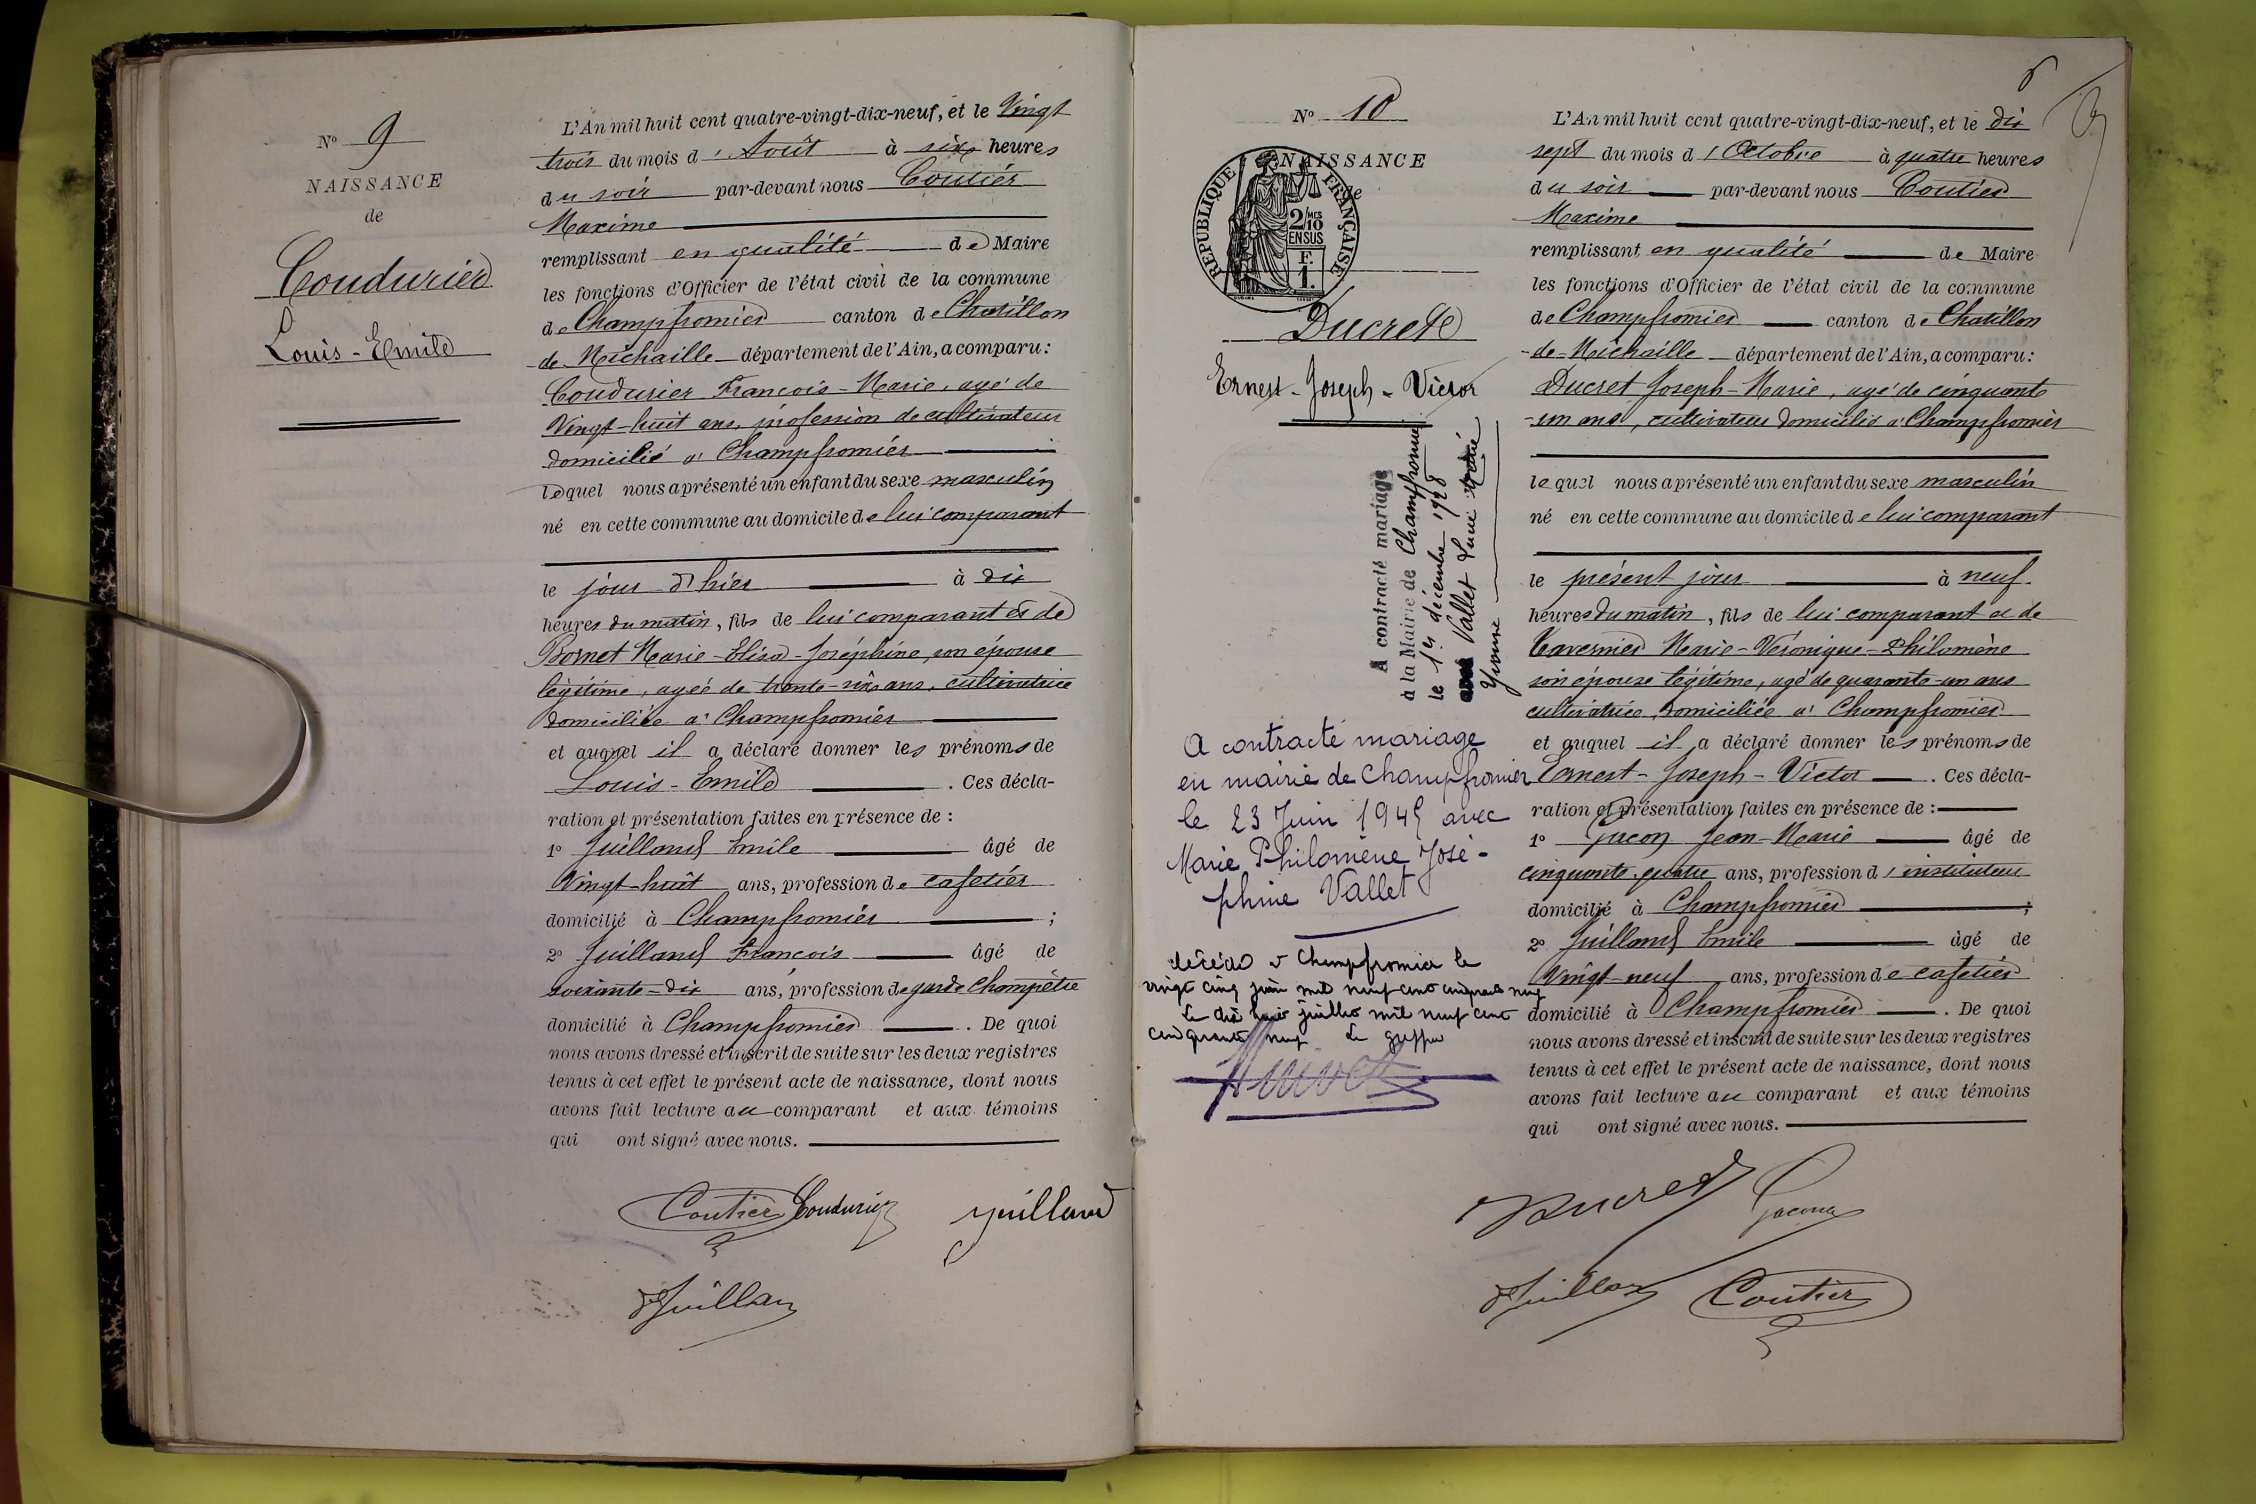 N° 9
NAISSANCE
de
Coudurier
Louis-Emile
L'An mil huit cent quatre-vingt-dix-neuf, et le Vingt
trois du mois d'Août à six heures
du soir par-devant nous Coutier
Maxime
remplissant en qualité de Maire
les fonctions d'Officier de l'état civil de la commune
de Champfromier canton de Chatillon
de Michaille département de l'Ain, a comparu:
Coudurier François-Marie, agé de
Vingt-huit ans, profession de cultivateur
domicilié à Champfromier
lequel nous a présenté un enfant du sexe masculin
né en cette commune au domicile de lui comparant
le jour d'hier à dix
heures du matin, fils de lui comparant et de
Bornet Marie-Elisa-Joséphine, son épouse
légitime, agée de trente-six ans, cultivatrice
domiciliée à Champfromier
et auquel il a déclaré donner les prénoms de
Louis-Emile. Ces décla-
ration et présentation faites en présence de :
1° Juilland Emile âgé de
Vingt-huit ans, profession de cafetier
domicilié à Champfromier ;
2° Juilland François âgé de
soixante-dix ans, profession de garde Champêtre
domicilié à Champfromier. De quoi
nous avons dressé et inscrit de suite sur les deux registres
tenus à cet effet le présent acte de naissance, dont nous
avons fait lecture au comparant et aux témoins
qui ont signé avec nous.
Coutier Coudurier Juilland
Juillan
N° 10
NAISSANCE
de
REPUBLIQUE FRANÇAISE
2/10 MES
EN SUS
F.
1.
Ducret
Ernest-Joseph-Victor
A contracté mariage
à la Mairie de Champfromier
le 1er décembre 1928
avec Vallet
Yvonne
A contracté mariage
en mairie de Champfromier
le 23 Juin 1945 avec
Marie Philomène José-
phine Vallet
décédé à Champfromier le
vingt cinq juin mil neuf cent cinquante neuf
Le dix huit juillet mil neuf cent
cinquante neuf Le greffier
L'An mil huit cent quatre-vingt-dix-neuf, et le dix
sept du mois d'Octobre à quatre heures
du soir par-devant nous Coutier
Maxime
remplissant en qualité de Maire
les fonctions d'Officier de l'état civil de la commune
de Champfromier canton de Chatillon
-de-Michaille département de l'Ain, a comparu:
Ducret Joseph-Marie, agé de cinquante
-un ans, cultivateur domicilié à Champfromier
lequel nous a présenté un enfant du sexe masculin
né en cette commune au domicile de lui comparant
le présent jour à neuf
heures du matin, fils de lui comparant et de
Tavernier Marie-Véronique-Philomène
son épouse légitime, agé de quarante-un ans
cultivatrice, domiciliée à Champfromier
et auquel il a déclaré donner les prénoms de
Ernest-Joseph-Victor. Ces décla-
ration et présentation faites en présence de :
1° Gacon Jean-Marie âgé de
cinquante-quatre ans, profession d'instituteur
domicilié à Champfromier ;
2° Juilland Emile âgé de
Vingt-neuf ans, profession de cafetier
domicilié à Champfromier. De quoi
nous avons dressé et inscrit de suite sur les deux registres
tenus à cet effet le présent acte de naissance, dont nous
avons fait lecture au comparant et aux témoins
qui ont signé avec nous.
Ducret Gacon
Juilland Coutier